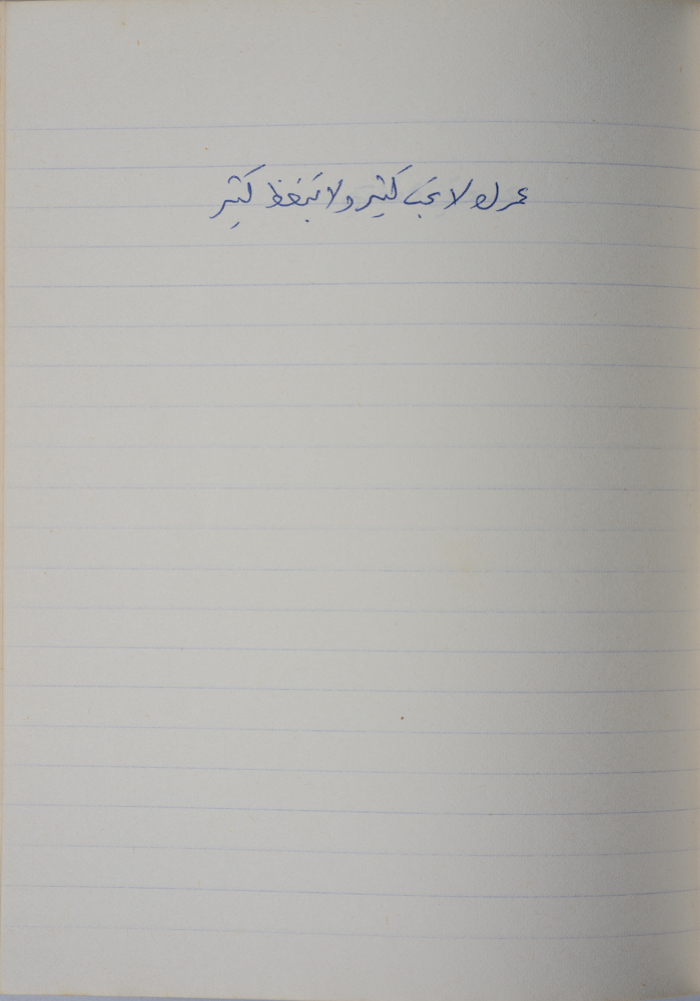 عمرك لا تحب كثير ولا تبغظ كثير